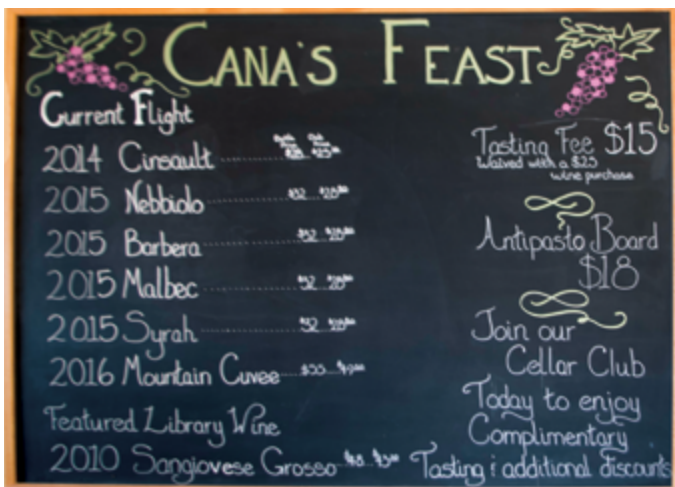 CANA'S FEAST
Current Flight
2014 Cinsault
2015 Nebbiolo
2015 Barbera
2015 Malbec
2015 Syrah
2016 Mountain Cuvee
Featured Library Wine
2010 Sangiovese Grosso
Tasting Fee $15
Waived with a $25
wine purchase
Antipasto Board
$18
Join our
Cellar Club
Today to enjoy
Complimentary
Tasting & additional discounts